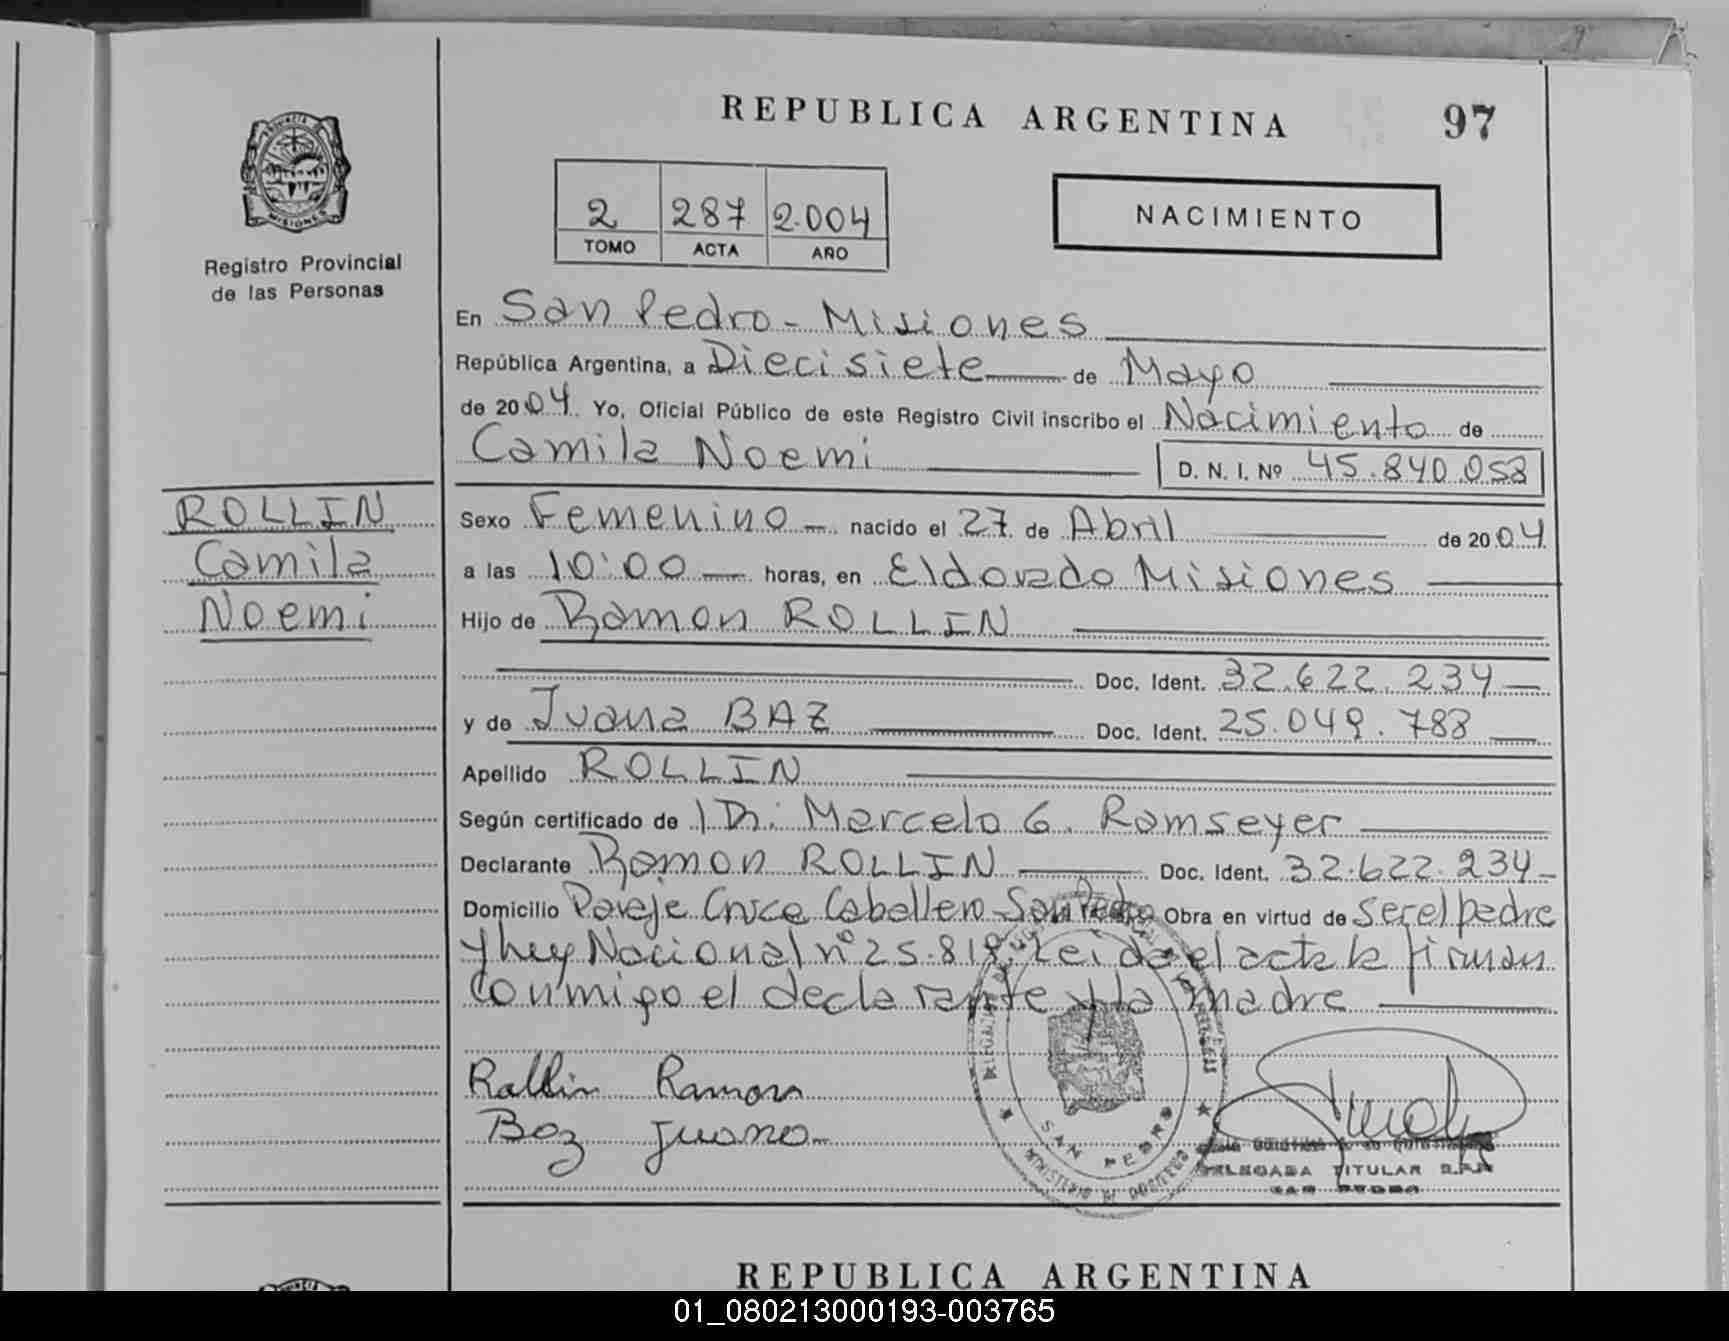 REPUBLICA ARGENTINA 97
PROVINCIA
MISIONES
Registro Provincial
de las Personas
2 287 2.004
TOMO ACTA AÑO
NACIMIENTO
En San Pedro - Misiones
República Argentina, a Diecisiete de Mayo
de 2004. Yo, Oficial Público de este Registro Civil inscribo el Nacimiento de
Camila Noemi D. N. I. Nº 45.840.058
ROLLIN
Camila
Noemi
Sexo Femenino nacido el 27 de Abril de 2004
a las 10:00 horas, en Eldorado Misiones
Hijo de Ramon ROLLIN
Doc. Ident. 32.622.234
y de Juana BAZ Doc. Ident. 25.049.788
Apellido ROLLIN
Según certificado de Dr. Marcelo G. Ramseyer
Declarante Ramon ROLLIN Doc. Ident. 32.622.234
Domicilio Paraje Cruce Caballero San Pedro Obra en virtud de ser el padre
y ley Nacional nº 25.818. Leida el acta la firman
conmigo el declarante y la madre
Rollin Ramon
Boz Juano
SAN PEDRO
DELEGADA TITULAR R.P.P.
SAN PEDRO
REPUBLICA ARGENTINA
01_080213000193-003765